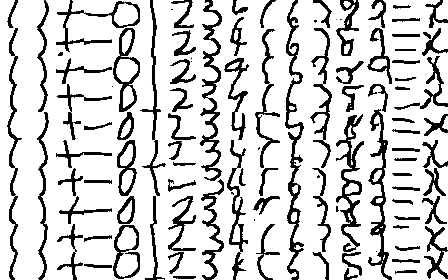 ( ) + - 0 1 2 3 4 6 7 8 9 = x
( ) + - 0 1 2 3 4 6 7 8 9 = x
( ) + - 0 1 2 3 4 6 7 8 9 = x
( ) + - 0 1 2 3 4 6 7 8 9 = x
( ) + - 0 1 2 3 4 6 7 8 9 = x
( ) + - 0 1 2 3 4 6 7 8 9 = x
( ) + - 0 1 2 3 4 6 7 8 9 = x
( ) + - 0 1 2 3 4 6 7 8 9 = x
( ) + - 0 1 2 3 4 6 7 8 9 = x
( ) + - 0 1 2 3 4 6 7 8 9 = x